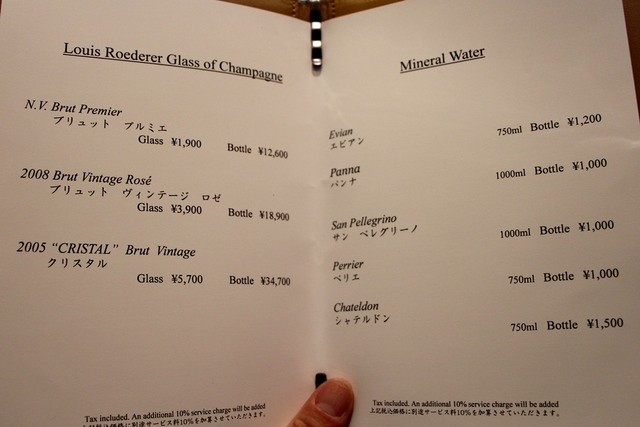 Louis Roederer Glass of Champagne
N.V. Brut Premier
ブリュット プルミエ
Glass ¥1,900 Bottle ¥12,600
2008 Brut Vintage Rosé
ブリュット ヴィンテージ ロゼ
Glass ¥3,900 Bottle ¥18,900
2005 “CRISTAL” Brut Vintage
クリスタル
Glass ¥5,700 Bottle ¥34,700
Tax included. An additional 10% service charge will be added
上記税込価格に別途サービス料10%を加算させていただきます。
Mineral Water
Evian
エビアン
750ml Bottle ¥1,200
Panna
パンナ
1000ml Bottle ¥1,000
San Pellegrino
サン ペレグリーノ
1000ml Bottle ¥1,000
Perrier
ペリエ
750ml Bottle ¥1,000
Chateldon
シャテルドン
750ml Bottle ¥1,500
Tax included. An additional 10% service charge will be added
上記税込価格に別途サービス料10%を加算させていただきます。